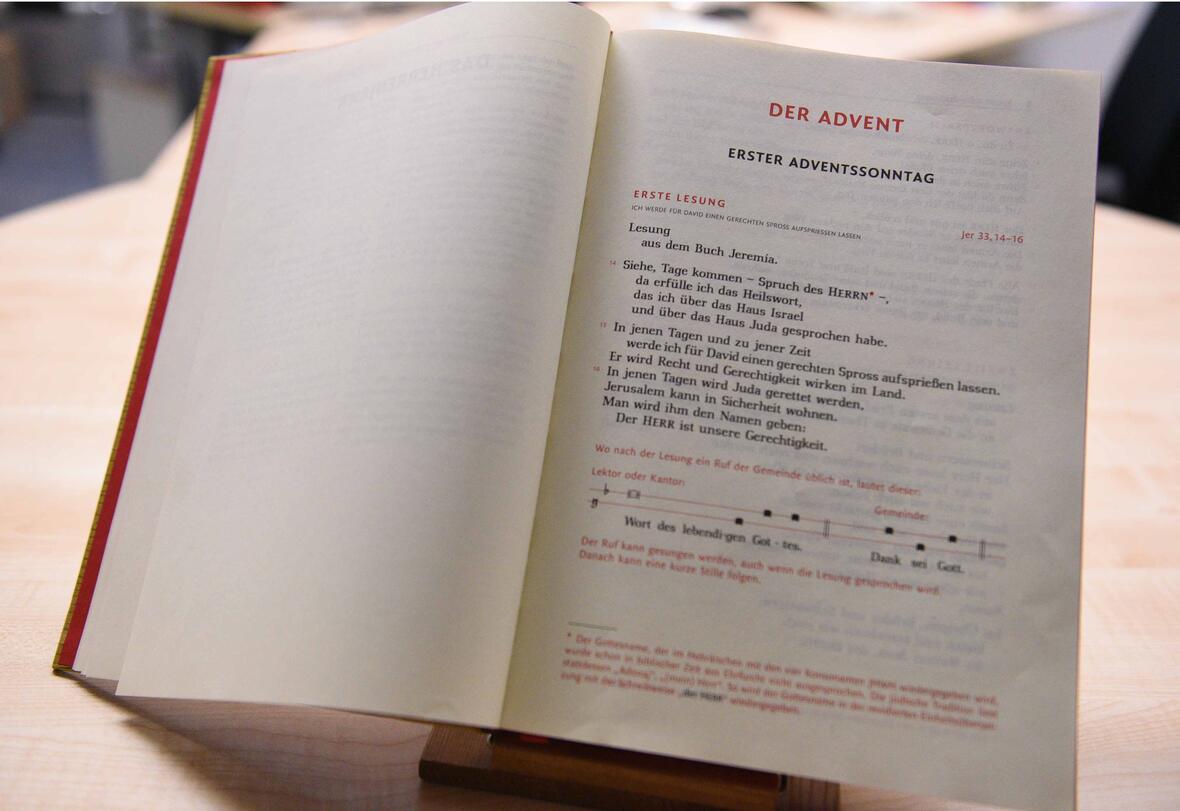 DER ADVENT
ERSTER ADVENTSSONNTAG
ERSTE LESUNG
ICH WERDE FÜR DAVID EINEN GERECHTEN SPROSS AUFSPRIESSEN LASSEN
Jer 33, 14–16
Lesung
aus dem Buch Jeremia.
14 Siehe, Tage kommen – Spruch des HERRN* –,
da erfülle ich das Heilswort,
das ich über das Haus Israel
und über das Haus Juda gesprochen habe.
15 In jenen Tagen und zu jener Zeit
werde ich für David einen gerechten Spross aufsprießen lassen.
Er wird Recht und Gerechtigkeit wirken im Land.
16 In jenen Tagen wird Juda gerettet werden,
Jerusalem kann in Sicherheit wohnen.
Man wird ihm den Namen geben:
Der HERR ist unsere Gerechtigkeit.
Wo nach der Lesung ein Ruf der Gemeinde üblich ist, lautet dieser:
Lektor oder Kantor:
Gemeinde:
Wort des lebendi-gen Got - tes.
Dank sei Gott.
Der Ruf kann gesungen werden, auch wenn die Lesung gesprochen wird.
Danach kann eine kurze Stille folgen.
* Der Gottesname, der im Hebräischen mit den vier Konsonanten JHWH wiedergegeben wird,
wurde schon in biblischer Zeit aus Ehrfurcht nicht ausgesprochen. Die jüdische Tradition liest
stattdessen „Adonaj“, „(mein) Herr“. So wird der Gottesname in der revidierten Einheitsüberset-
zung mit der Schreibweise „der HERR“ wiedergegeben.